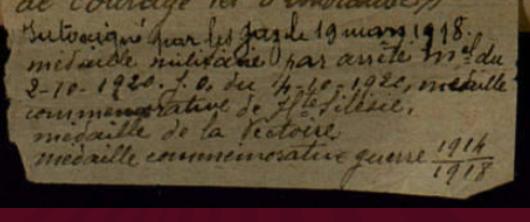 de courage et d'endurance
Intoxiqué par les gaz le 19 mars 1918.
médaille militaire par arrêté Mel du
2-10-1920. J.O. du 4-10-1920, médaille
commémorative de Hte Silésie,
médaille de la Victoire
médaille commémorative guerre 1914
1918